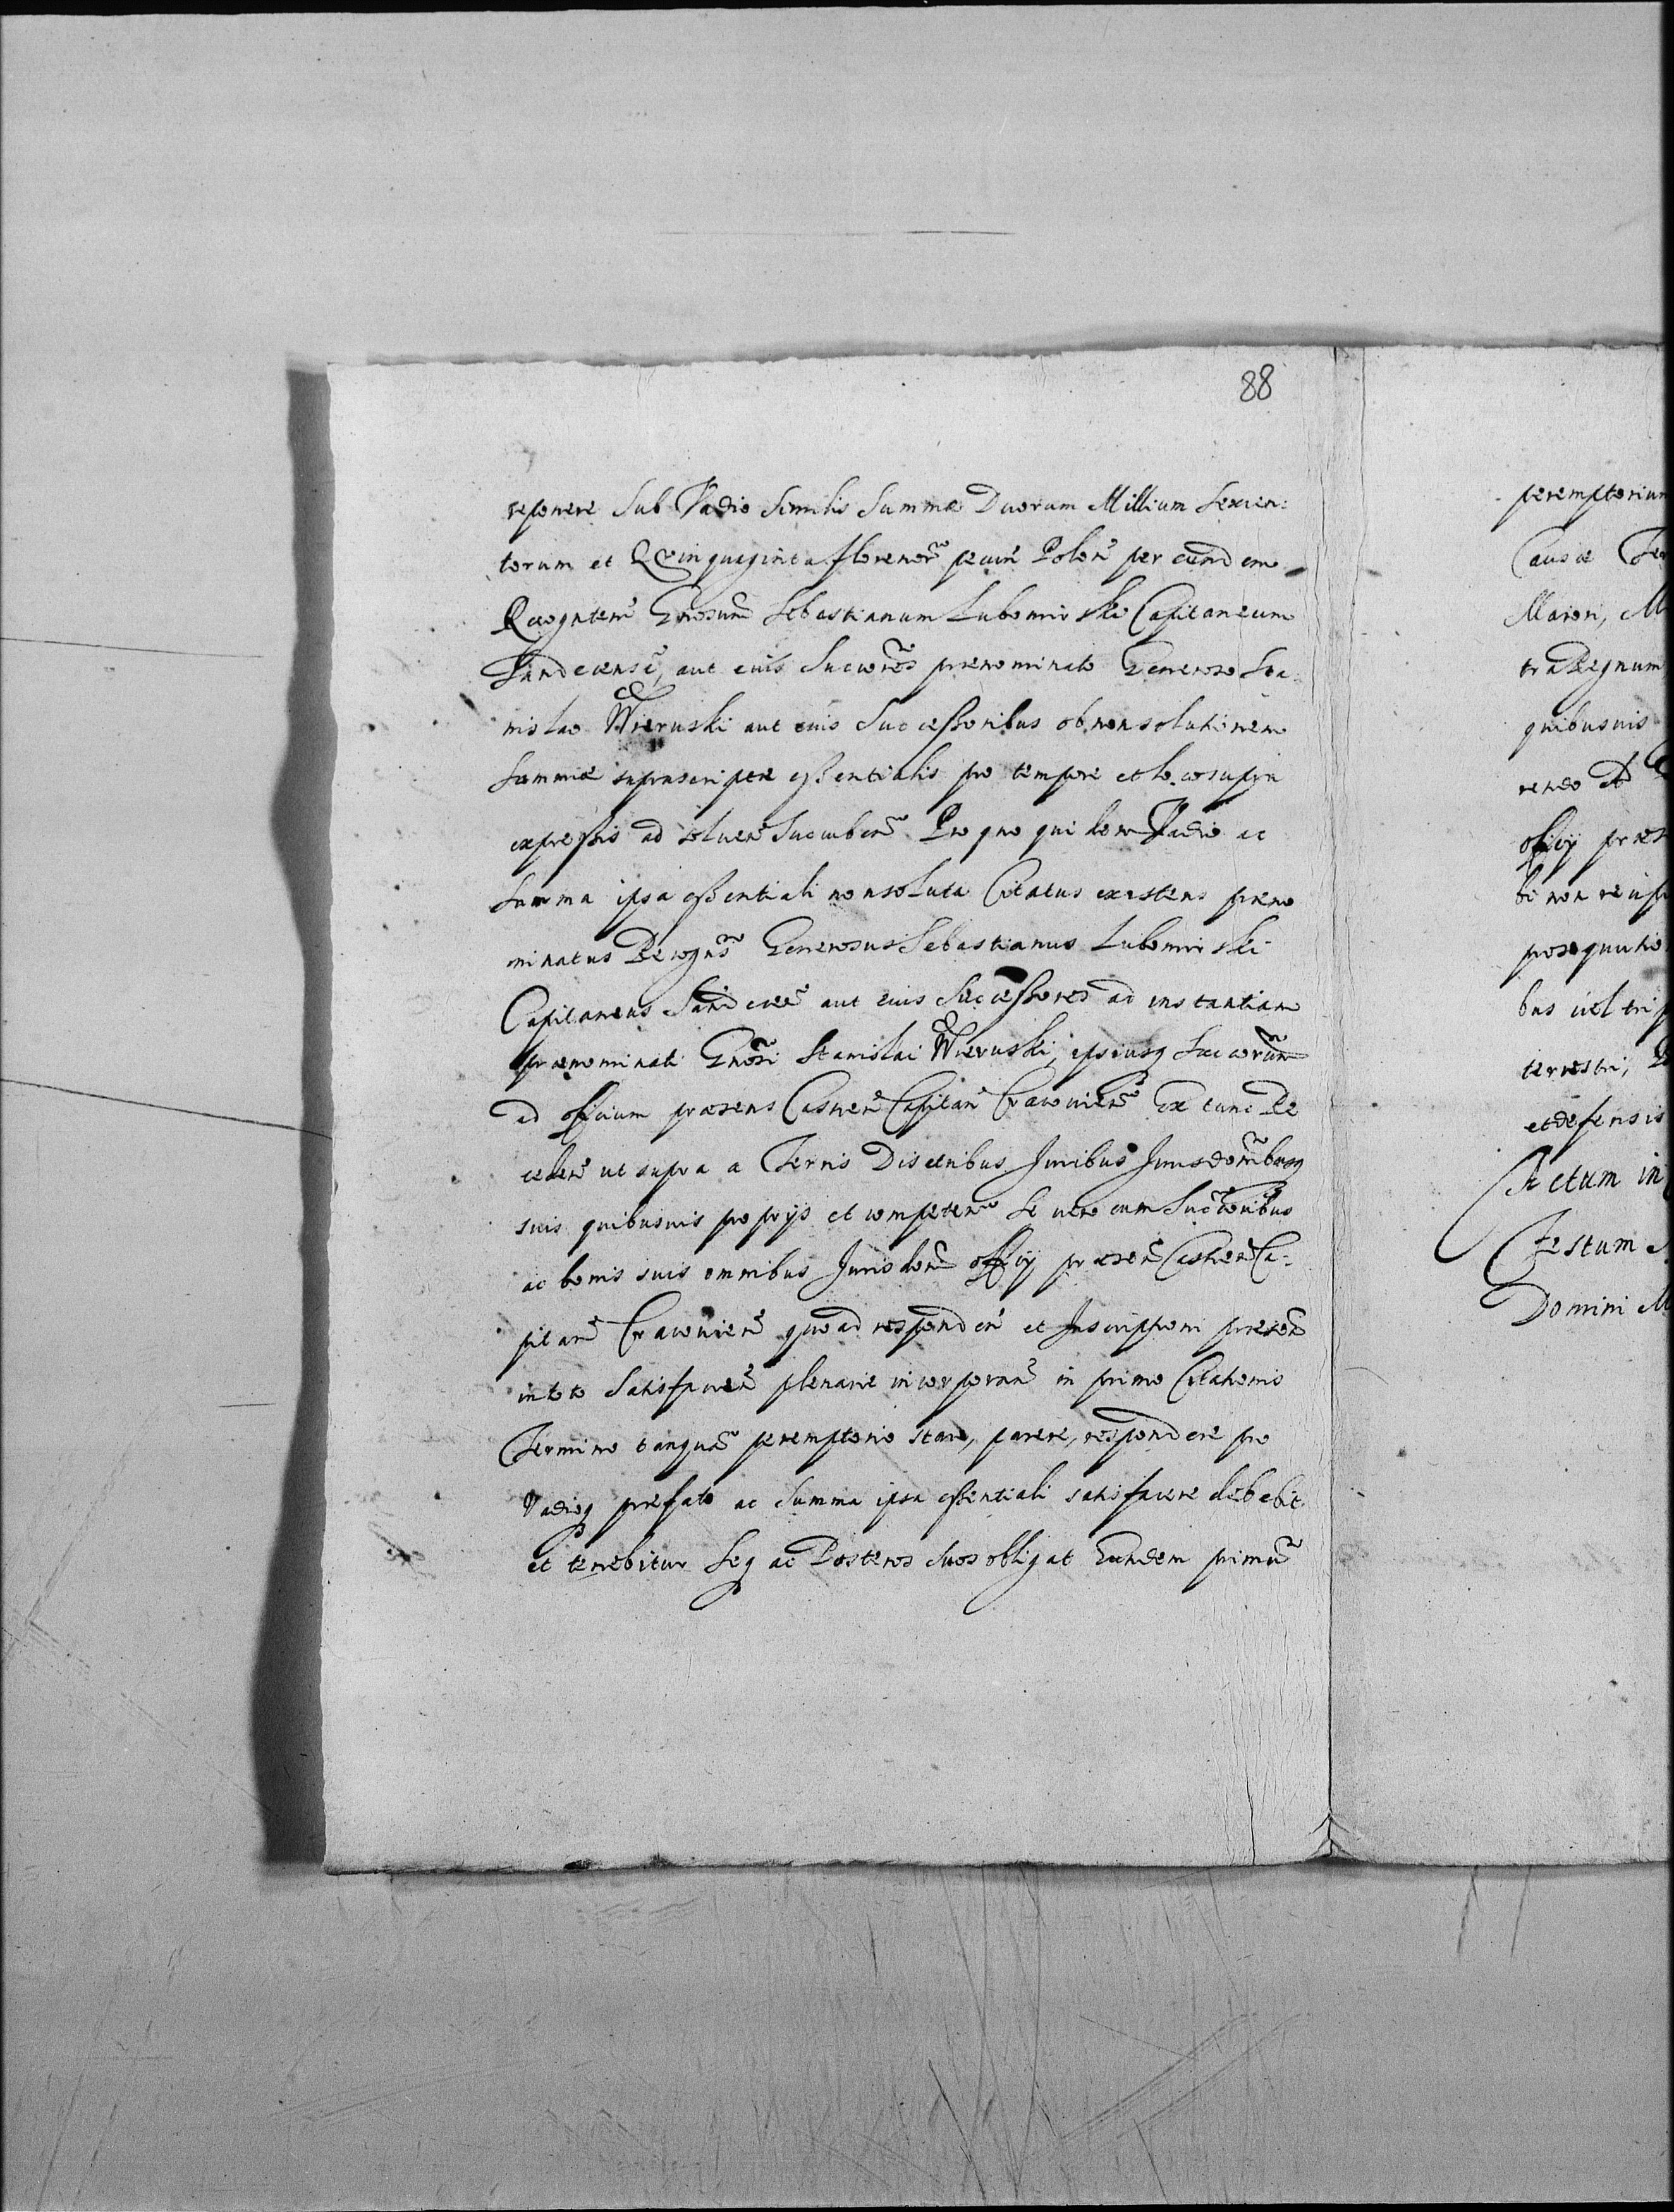 88
reponere Sub Vadio Similis Summæ Duorum Millium Sexcen:
torum et Quinquaginta florenor̃ pecuñ Poloñ per eundem
Recogntem̃ Gñosum̃ Sebastianum Lubomirski Capitaneum
Sandecens̃, aut eius Succores̃ prænominato Generoso Sta
nislao Wieruski aut eius Successoribus ob non solutionem
Summæ suprascriptæ essentialis pro tempore et loco supra
expressis ad soluen̄ Succubeñ Pro quo quidem Vadio ac
Summa ipsa essentiali non soluta Citatus existens præno
minatus Recogns̃ Generosus Sebastianus Lubomirski
Capitaneus Sandeceñ aut eius Successores ad instantiam
prænominati Gnosi̇̃ Stanislai Wieruski, ipsiusq Succorum̃
ad officium præsens Castreñ Capitañ Cracovieñ Ex tunc Re
cedeñ ut supra a Terris Distribus Juribus Jurisdonibusq̃
suis quibusuis proprijs et competeñ Se vero cum Succoribus̃
ac bonis suis omnibus Jurisdoni̇̃ officij præseñ Castreñ Ca-
pitañ Cracovieñ quoad respondeñ et Inscriptioni præseñ
in toto Satisfacieñ plenarie incorporañ in primo Citationis
Termino tanquã peremptorio stare, parere, respondere pro
Vadioq præfato ac Summa ipsa essentiali satisfacere debebit
et tenebitur Seq ac Posteros suos obligat Eundem primũ
peremptorium
Causæ Ter
Maiori, M
tra Regnum
quibusuis
rendo
officij præs
bus vel
terrestri,
et defensis
Actum in
Festum
Domini M